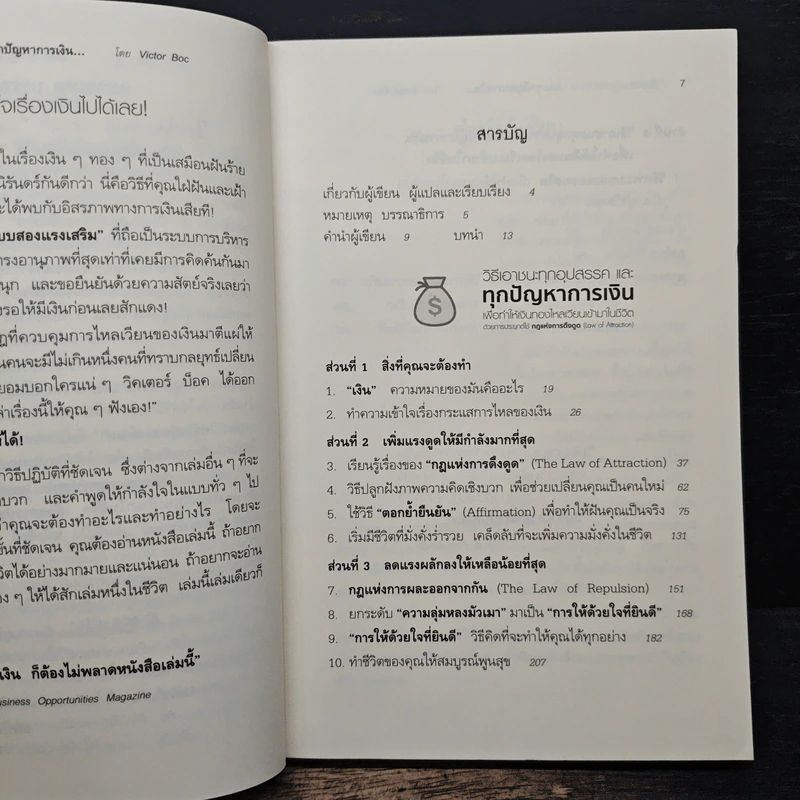 ปัญหาการเงิน... โดย Victor Boc
เรื่องเงินไปได้เลย!
ในเรื่องเงิน ๆ ทอง ๆ ที่เป็นเสมือนฝันร้าย
นิรันดร์กันดีกว่า นี่คือวิธีที่คุณใฝ่ฝันและเฝ้า
ะได้พบกับอิสรภาพทางการเงินเสียที!
บบสองแรงเสริม” ที่ถือเป็นระบบการบริหาร
ทรงอานุภาพที่สุดเท่าที่เคยมีการคิดค้นกันมา
นุก และขอยืนยันด้วยความสัตย์จริงเลยว่า
งรอให้มีเงินก่อนเลยสักแดง!
ฎที่ควบคุมการไหลเวียนของเงินมาตีแผ่ให้
นคนจะมีไม่เกินหนึ่งคนที่ทราบกลยุทธ์เปลี่ยน
ยอมบอกใครแน่ ๆ วิคเตอร์ บ็อค ได้ออก
ล่าเรื่องนี้ให้คุณ ๆ ฟังเอง!”
ได้!
วิธีปฏิบัติที่ชัดเจน ซึ่งต่างจากเล่มอื่น ๆ ที่จะ
บวก และคำพูดให้กำลังใจในแบบทั่ว ๆ ไป
ว่าคุณจะต้องทำอะไรและทำอย่างไร โดยจะ
ขั้นที่ชัดเจน คุณต้องอ่านหนังสือเล่มนี้ ถ้าอยาก
วิตได้อย่างมากมายและแน่นอน ถ้าอยากจะอ่าน
ง ๆ ให้ได้สักเล่มหนึ่งในชีวิต เล่มนี้เล่มเดียวก็
เงิน ก็ต้องไม่พลาดหนังสือเล่มนี้”
usiness Opportunities Magazine
7
สารบัญ
เกี่ยวกับผู้เขียน ผู้แปลและเรียบเรียง 4
หมายเหตุ บรรณาธิการ 5
คำนำผู้เขียน 9 บทนำ 13
วิธีเอาชนะทุกอุปสรรค และ
ทุกปัญหาการเงิน
เพื่อทำให้เงินทองไหลเวียนเข้ามาในชีวิต
ด้วยการประยุกต์ใช้ กฎแห่งการดึงดูด (Law of Attraction)
$
ส่วนที่ 1 สิ่งที่คุณจะต้องทำ
1. “เงิน” ความหมายของมันคืออะไร 19
2. ทำความเข้าใจเรื่องกระแสการไหลของเงิน 26
ส่วนที่ 2 เพิ่มแรงดูดให้มีกำลังมากที่สุด
3. เรียนรู้เรื่องของ “กฎแห่งการดึงดูด” (The Law of Attraction) 37
4. วิธีปลูกฝังภาพความคิดเชิงบวก เพื่อช่วยเปลี่ยนคุณเป็นคนใหม่ 62
5. ใช้วิธี “ตอกย้ำยืนยัน” (Affirmation) เพื่อทำให้ฝันคุณเป็นจริง 75
6. เริ่มมีชีวิตที่มั่งคั่งร่ำรวย เคล็ดลับที่จะเพิ่มความมั่งคั่งในชีวิต 131
ส่วนที่ 3 ลดแรงผลักลงให้เหลือน้อยที่สุด
7. กฎแห่งการผละออกจากกัน (The Law of Repulsion) 151
8. ยกระดับ “ความลุ่มหลงมัวเมา” มาเป็น “การให้ด้วยใจที่ยินดี” 168
9. “การให้ด้วยใจที่ยินดี” วิธีคิดที่จะทำให้คุณได้ทุกอย่าง 182
10. ทำชีวิตของคุณให้สมบูรณ์พูนสุข 207